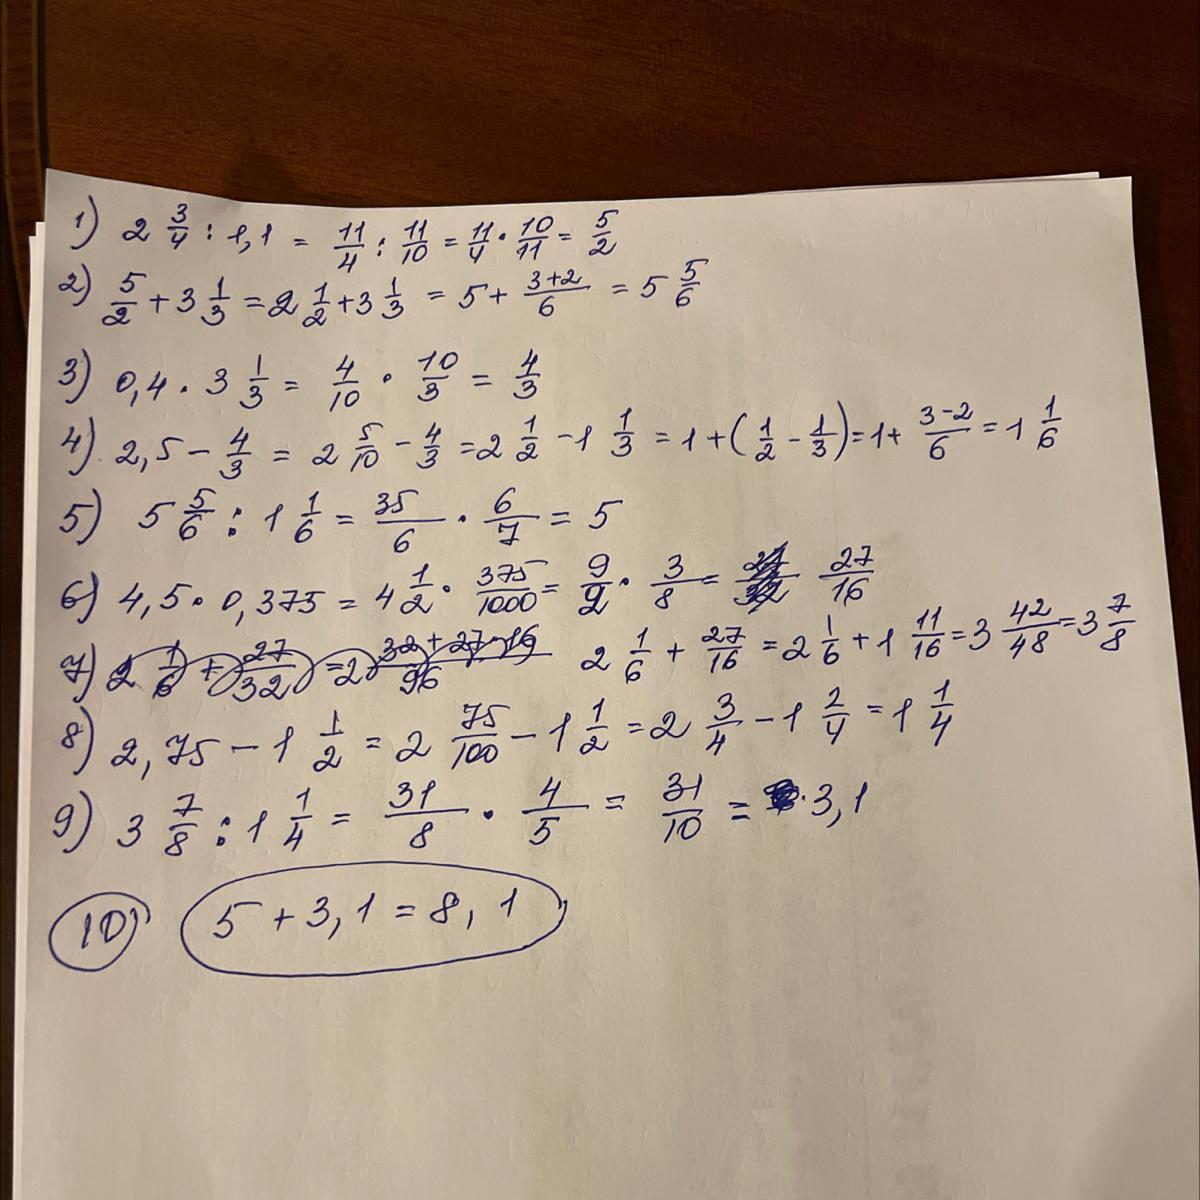 1) 2 3/4 : 1,1 = 11/4 : 11/10 = 11/4 · 10/11 = 5/2
2) 5/2 + 3 1/3 = 2 1/2 + 3 1/3 = 5 + (3+2)/6 = 5 5/6
3) 0,4 · 3 1/3 = 4/10 · 10/3 = 4/3
4) 2,5 - 4/3 = 2 5/10 - 4/3 = 2 1/2 - 1 1/3 = 1 + (1/2 - 1/3) = 1 + (3-2)/6 = 1 1/6
5) 5 5/6 : 1 1/6 = 35/6 · 6/7 = 5
6) 4,5 · 0,375 = 4 1/2 · 375/1000 = 9/2 · 3/8 = 27/16
7) 2 1/6 + 27/32 = 2 (32+27·16)/96 2 1/6 + 27/16 = 2 1/6 + 1 11/16 = 3 42/48 = 3 7/8
8) 2,75 - 1 1/2 = 2 75/100 - 1 1/2 = 2 3/4 - 1 2/4 = 1 1/4
9) 3 7/8 : 1 1/4 = 31/8 · 4/5 = 31/10 = 3,1
10) 5 + 3,1 = 8,1